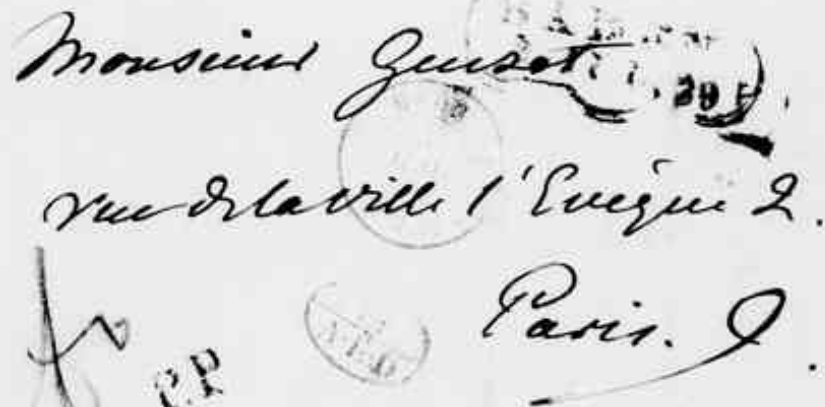 Monsieur Guizot
rue de la ville l'Evêque 2.
Paris.
P.P